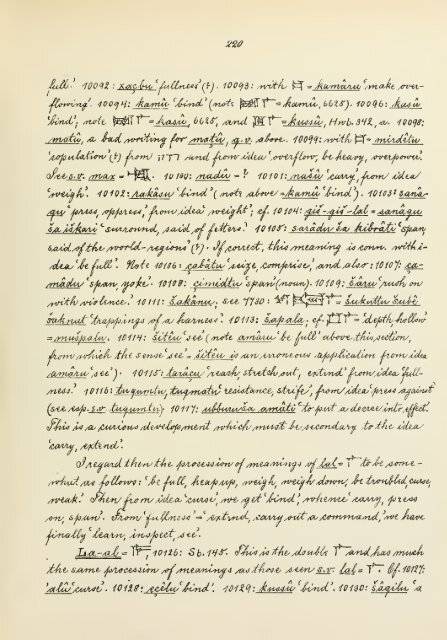 220
full.' 10092: xaçbu 'fullness' (?). 10093: with = kamâru 'make over-
flowing'. 10094: kamû 'bind' (note = kamû, 6625). 10096: kasû
'bind'; note = kasû, 6625, and = kussû, Hwb. 342, a. 10098:
matû, a bad writing for maṭû, q.v. above. 10099: with = mirdêtu
'copulation' (?) from and from idea 'overflow, be heavy, overpower'.
See s.v. max = . 10100: nadû = ? 10101: našû 'carry', from idea
'weigh'. 10102: rakâsu 'bind' (note above = kamû 'bind'). 10103: sanâ-
qu 'press, oppress', from idea 'weight'; cf. 10104: giš-giš-lal = sanâqu
ša iškari 'surround, said of fetters'. 10105: sarâdu ša kibrâti 'span,
said of the world-regions' (?). If correct, this meaning is conn. with i-
dea 'be full'. Note 10106: çabâtu 'seize, comprise', and also: 10107: ça-
mâdu 'span, yoke'. 10108: çimidtu 'span' (noun). 10109: šâru 'rush on
with violence.' 10111: šakânu; see 7730: = šukuttu šubê
šaknut 'trappings of a harness'. 10113: šapala; cf. = 'depth, hollow'
= mušpalu. 10114: šitêu 'see' (note amâru 'be full' above this section,
from which the sense 'see' = šitêu is an erroneous application from idea
amâru 'see'). 10115: tarâçu 'reach, stretch out, extend' from idea 'full-
ness.' 10116: tuquntu, tuqmatu 'resistance, strife', from idea 'press against'
(see esp. s.v. tuquntu). 10117: ubburu ša amâti 'to put a decree into effect'.
This is a curious development which must be secondary to the idea
'carry, extend'.
I regard then the procession of meanings of lal = to be some-
what as follows: 'be full, heap up, weigh, weigh down, be troubled, curse,
weak'. Then from idea 'curse', we get 'bind', whence 'carry, press
on, span'. From 'fullness' = 'extend, carry out a command', we have
finally 'learn, inspect, see'.
La-al = , 10126: Sb. 148. This is the double and has much
the same procession of meanings as those seen s.v. lal = . Cf. 10127:
'alû 'curse'. 10128: eçêlu 'bind'. 10129: kussû 'bind'. 10130: šâqilu 'a